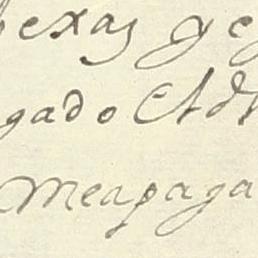 bexas y e
gado El d
Meapaga